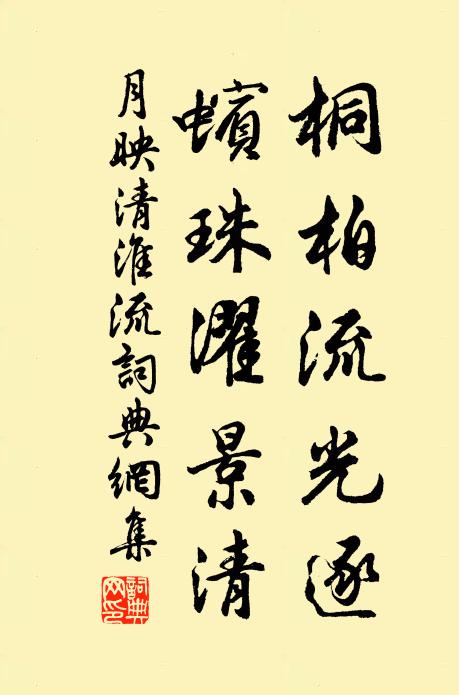 桐柏流光逐
蠙珠濯景清
月映清淮流詞典網集
詞典網印